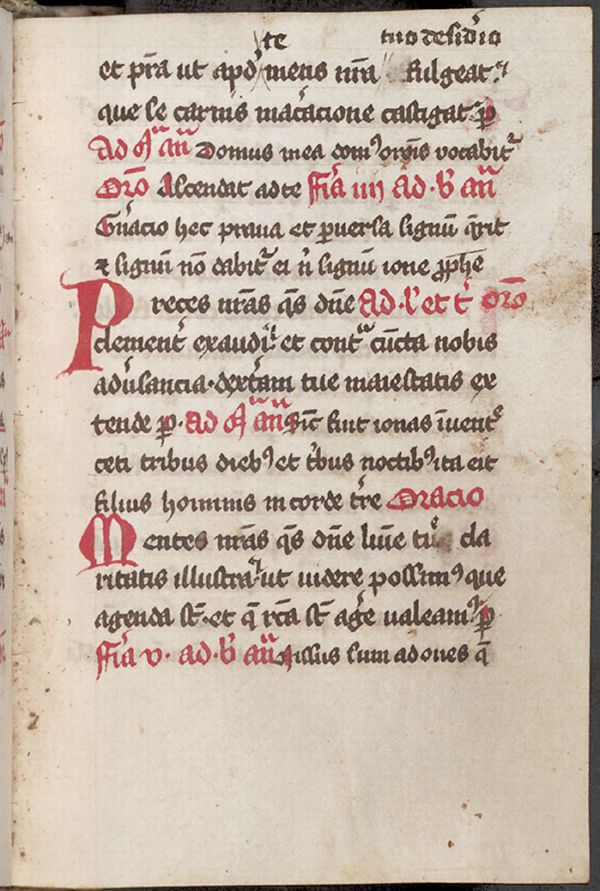 te tuo desid'io
et p̄ra ut apd' mens nr̄a fulgeat·
que se carnis mac'acione castigat· p̄
Ad m̄ an̄ Domus mea dom' or̄onis vocabit'
Or̄o Ascendat ad te ffr̄ia iiij ad · b' an̄
Gn̄acio hec praua et puersa signū q̄rit
⁊ signū nō dabit' ei n̄ signū ione pp̄he
Preces nr̄as q̄s dn̄e ad · l' et t' or̄o
clement' exaudi· et cont̄ cūcta nobis
adu'sancia · dext'am tue maiestatis ex
tende p̄ · ad m̄ an̄ Sic̄ fuit ionas ī uent'
ceti tribus dieb' et t'bus noctib' ita eit
filius hominis in corde t're Oracio
Mentes nr̄as q̄s dn̄e lūīe tu' cla
ritatis illustra· ut videre possim' que
agenda st̄· et q̄ rc̄a st̄ ag'e valeam' p̄
ffr̄ia v · ad · b' an̄ Missus sum ad oues q̄